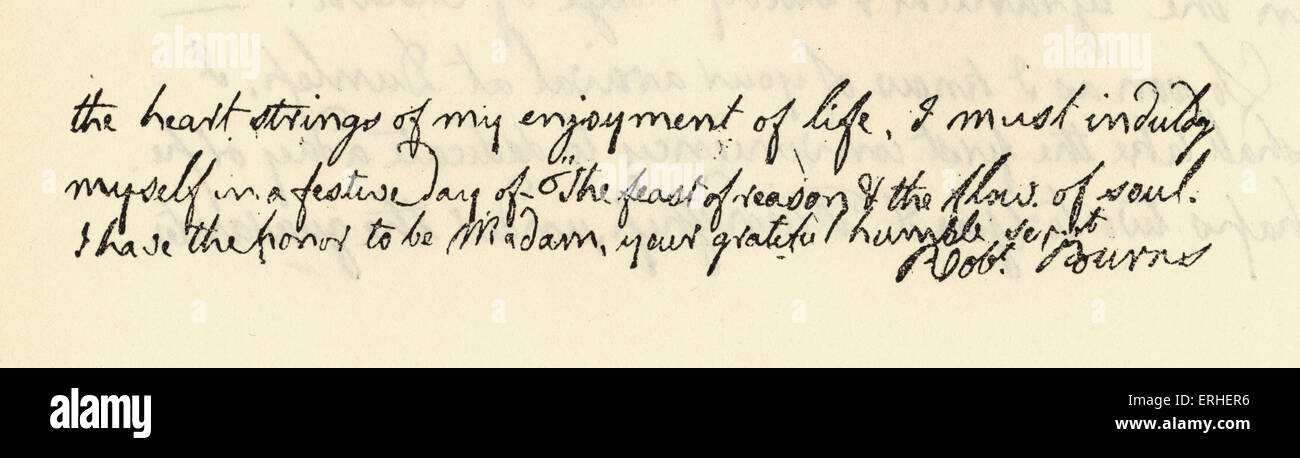 the heart strings of my enjoyment of life, I must indulge
myself in a festive day of "The feast of reason & the flow of soul.
I have the honor to be Madam, your grateful humble servt
Robt. Burns
alamy
a
alamy stock photo
ERHER6
www.alamy.com